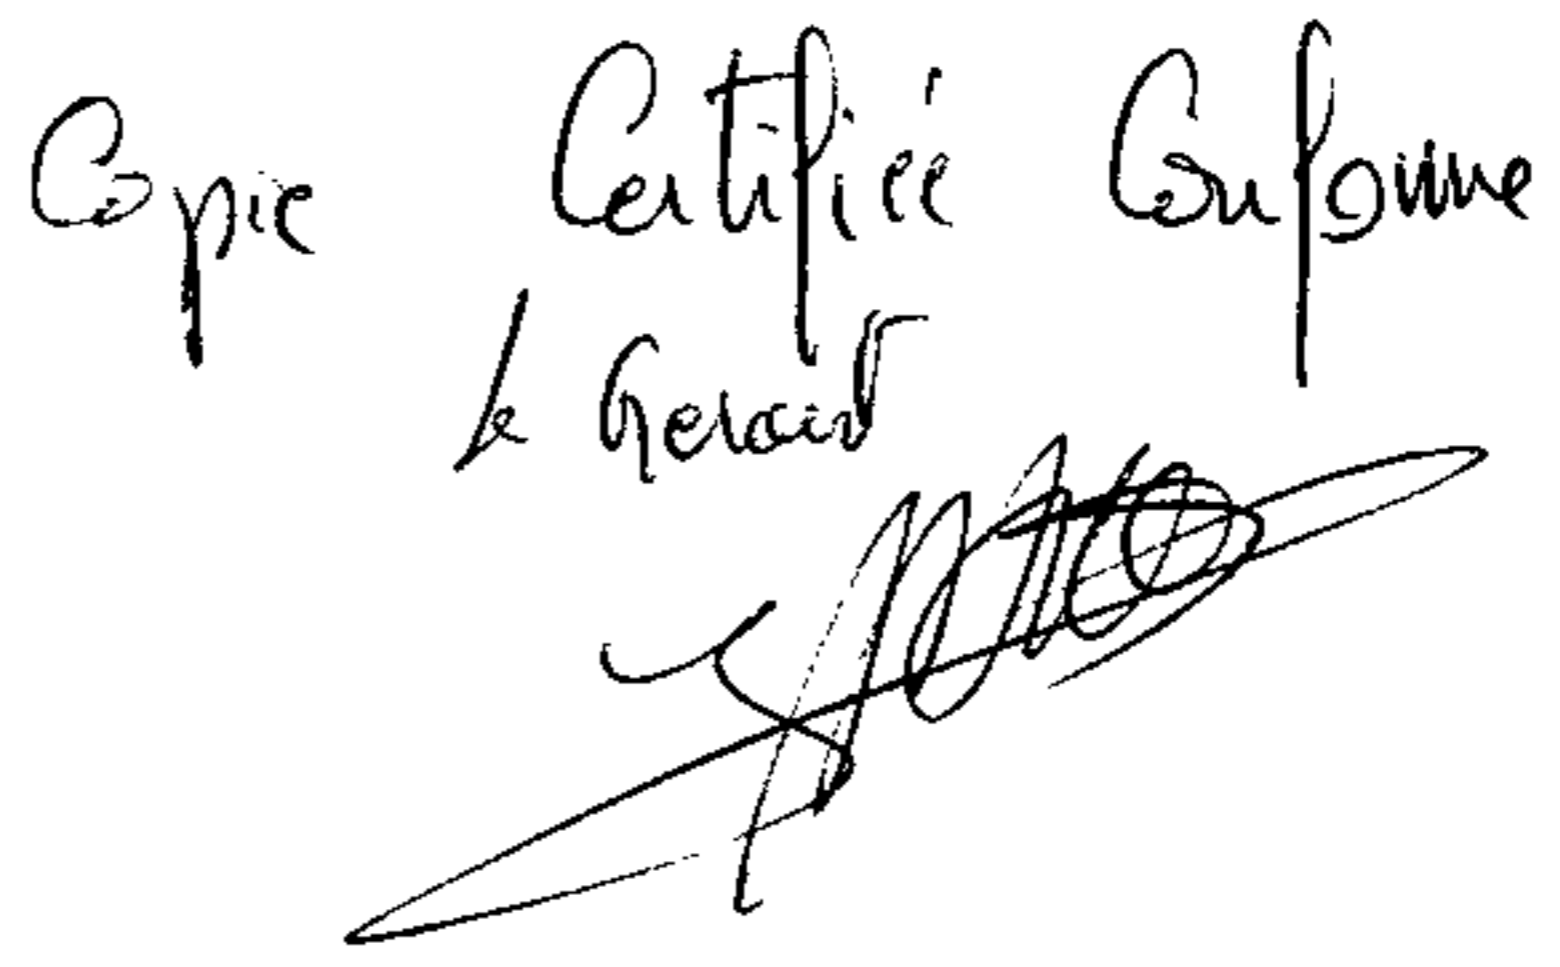 Copie Certifiée Conforme
le Gerant